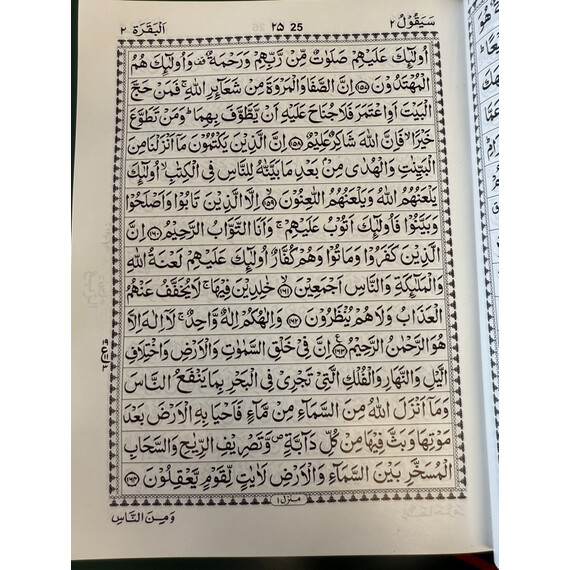 سَیَقُوْلُ ۲
۲۵ 25
اَلْبَقَرَة ۲
اُولٰٓئِكَ عَلَیْهِمْ صَلَوٰتٌ مِّنْ رَّبِّهِمْ وَرَحْمَةٌ ۫ وَاُولٰٓئِكَ هُمُ
الْمُهْتَدُوْنَ ﴿۱۵۷﴾ اِنَّ الصَّفَا وَالْمَرْوَةَ مِنْ شَعَآىِٕرِ اللّٰهِ ۚ فَمَنْ حَجَّ
الْبَیْتَ اَوِاعْتَمَرَ فَلَا جُنَاحَ عَلَیْهِ اَنْ یَّطَّوَّفَ بِهِمَا ؕ وَمَنْ تَطَوَّعَ
خَیْرًا ۙ فَاِنَّ اللّٰهَ شَاكِرٌ عَلِیْمٌ ﴿۱۵۸﴾ اِنَّ الَّذِیْنَ یَكْتُمُوْنَ مَاۤ اَنْزَلْنَا مِنَ
الْبَیِّنٰتِ وَالْهُدٰی مِنْۢ بَعْدِ مَا بَیَّنّٰهُ لِلنَّاسِ فِی الْكِتٰبِ ۙ اُولٰٓئِكَ
یَلْعَنُهُمُ اللّٰهُ وَیَلْعَنُهُمُ اللّٰعِنُوْنَ ﴿۱۵۹﴾ اِلَّا الَّذِیْنَ تَابُوْا وَاَصْلَحُوْا
وَبَیَّنُوْا فَاُولٰٓئِكَ اَتُوْبُ عَلَیْهِمْ ۚ وَاَنَا التَّوَّابُ الرَّحِیْمُ ﴿۱۶۰﴾ اِنَّ
الَّذِیْنَ كَفَرُوْا وَمَاتُوْا وَهُمْ كُفَّارٌ اُولٰٓئِكَ عَلَیْهِمْ لَعْنَةُ اللّٰهِ
وَالْمَلٰٓئِكَةِ وَالنَّاسِ اَجْمَعِیْنَ ﴿۱۶۱﴾ خٰلِدِیْنَ فِیْهَا ۚ لَا یُخَفَّفُ عَنْهُمُ
الْعَذَابُ وَلَا هُمْ یُنْظَرُوْنَ ﴿۱۶۲﴾ وَاِلٰهُكُمْ اِلٰهٌ وَّاحِدٌ ۚ لَاۤ اِلٰهَ اِلَّا
هُوَ الرَّحْمٰنُ الرَّحِیْمُ ﴿۱۶۳﴾ اِنَّ فِیْ خَلْقِ السَّمٰوٰتِ وَالْاَرْضِ وَاخْتِلَافِ
الَّیْلِ وَالنَّهَارِ وَالْفُلْكِ الَّتِیْ تَجْرِیْ فِی الْبَحْرِ بِمَا یَنْفَعُ النَّاسَ
وَمَاۤ اَنْزَلَ اللّٰهُ مِنَ السَّمَآءِ مِنْ مَّآءٍ فَاَحْیَا بِهِ الْاَرْضَ بَعْدَ
مَوْتِهَا وَبَثَّ فِیْهَا مِنْ كُلِّ دَآبَّةٍ ۪ وَّتَصْرِیْفِ الرِّیٰحِ وَالسَّحَابِ
الْمُسَخَّرِ بَیْنَ السَّمَآءِ وَالْاَرْضِ لَاٰیٰتٍ لِّقَوْمٍ یَّعْقِلُوْنَ ﴿۱۶۴﴾
منزل ۱
وَمِنَ النَّاسِ